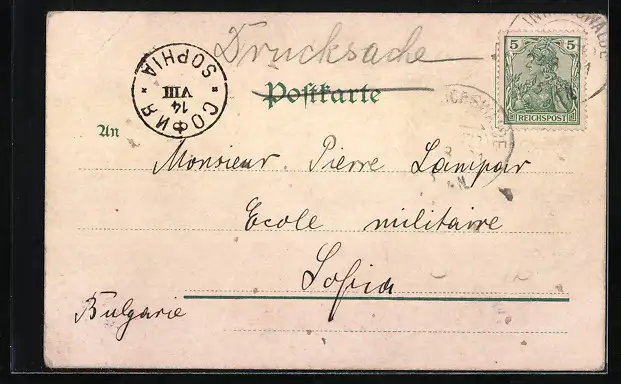 Drucksache
Postkarte
СОФИЯ
SOPHIA
14
VIII
5 5
REICHSPOST
An
Monsieur Pierre Lampar
Ecole militaire
Sofia
Bulgarie